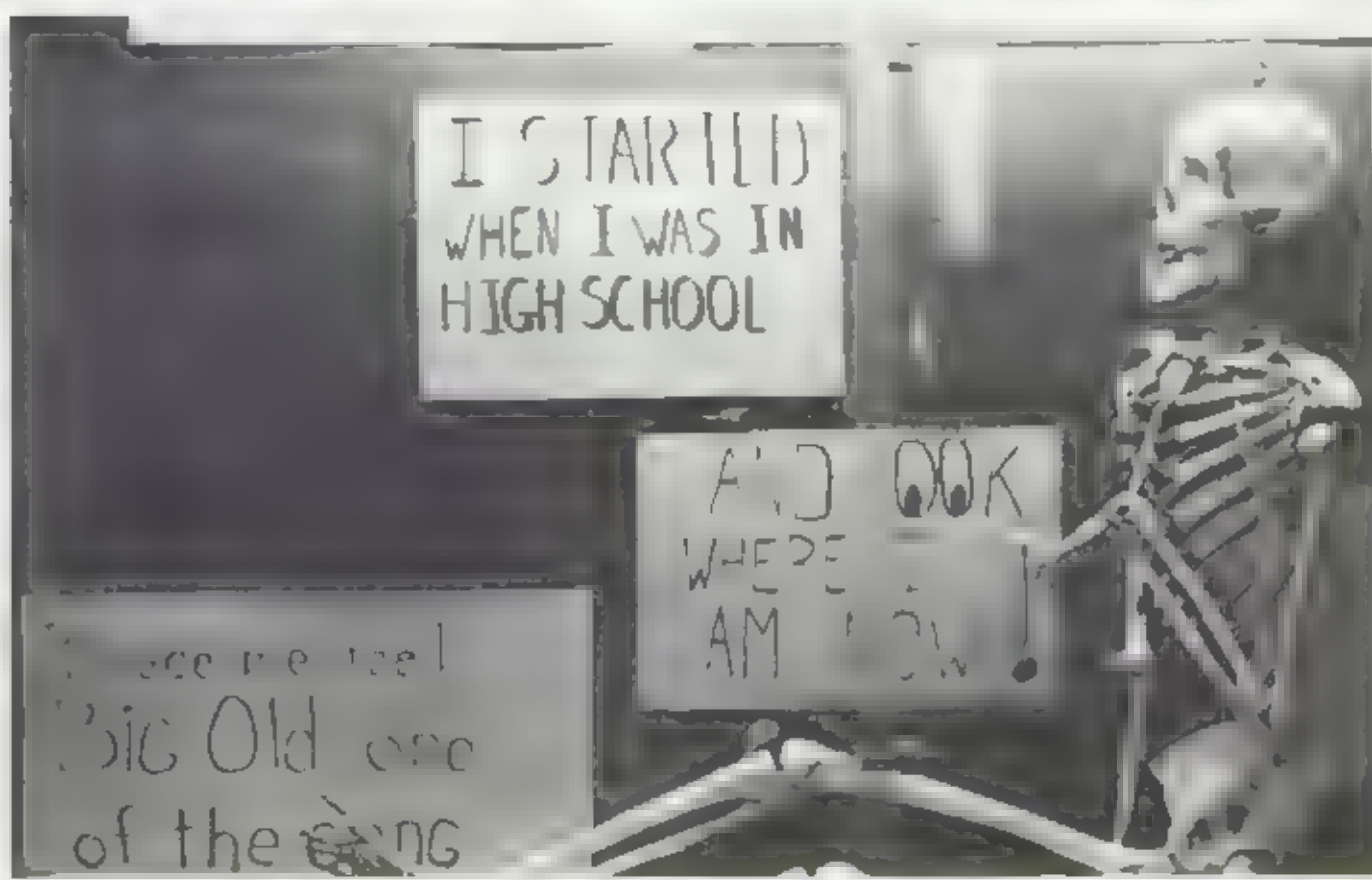 I STARTED
WHEN I WAS IN
HIGH SCHOOL
AND LOOK
WHERE I
AM NOW !
me feel
Big Old one
of the